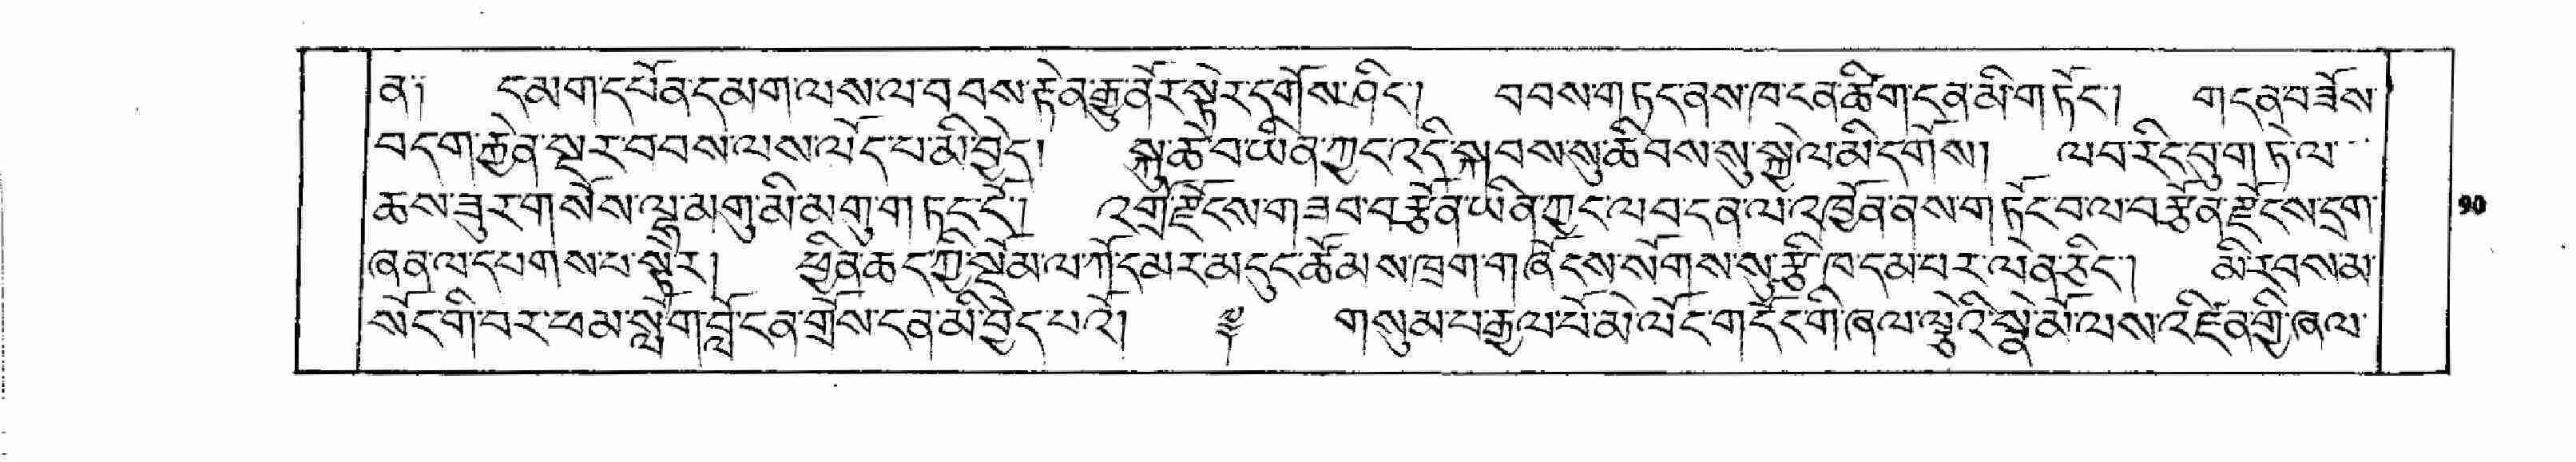 ན། དམག་དཔོན་དམག་ལས་ལ་བབས་རྟེན་རྒྱུ་ནོར་སྟེར་དགོས་ཤིང་། བབས་གཏད་ནས་ཁ་ངན་ཚིག་ངན་མི་གཏོང་། གདན་བཟོས་
བདག་རྐྱེན་སྔར་བབས་ལས་ལོད་པ་མི་བྱེད། སྐུ་ཆེ་བ་ཡིན་ཀྱང་འདི་སྐབས་སུ་ཆིབས་སུ་སྐྱེལ་མི་དགོས། ལབ་རིད་བུག་ཏེ་ལ་
ཆས་ཟུར་གསོས་ལྷ་མགུ་མི་མགུ་གཏང་ངོ་། འགྲོ་རྫོངས་གཟབ་བརྩོན་ཡིན་ཀྱང་ལབ་དན་ལ་འཁྱོན་ནས་གཏོང་བ་ལ་བརྩོན་རྫོངས་དྲག་
ཞན་ལ་དཔགས་པ་སྟེར། ཕྱིན་ཆད་ཀྱི་སྡོམ་ལ་ཀོ་དམར་མདུང་ཚོམས་ཁྲག་གཞོངས་སོགས་སུ་རྩི་ཁ་དམ་པར་ལེན་ཅིང་། མི་རབས་མ་
སོང་གི་བར་ཕམ་སློག་བློ་ངན་གྲོས་ངན་མི་བྱེད་པའོ། ༈ གསུམ་པ་རྒྱལ་པོ་མེ་ལོང་གདོང་གི་ཞལ་ལྕེའི་སྣེ་མོ་ལས་འཛིན་གྱི་ཞལ་
90